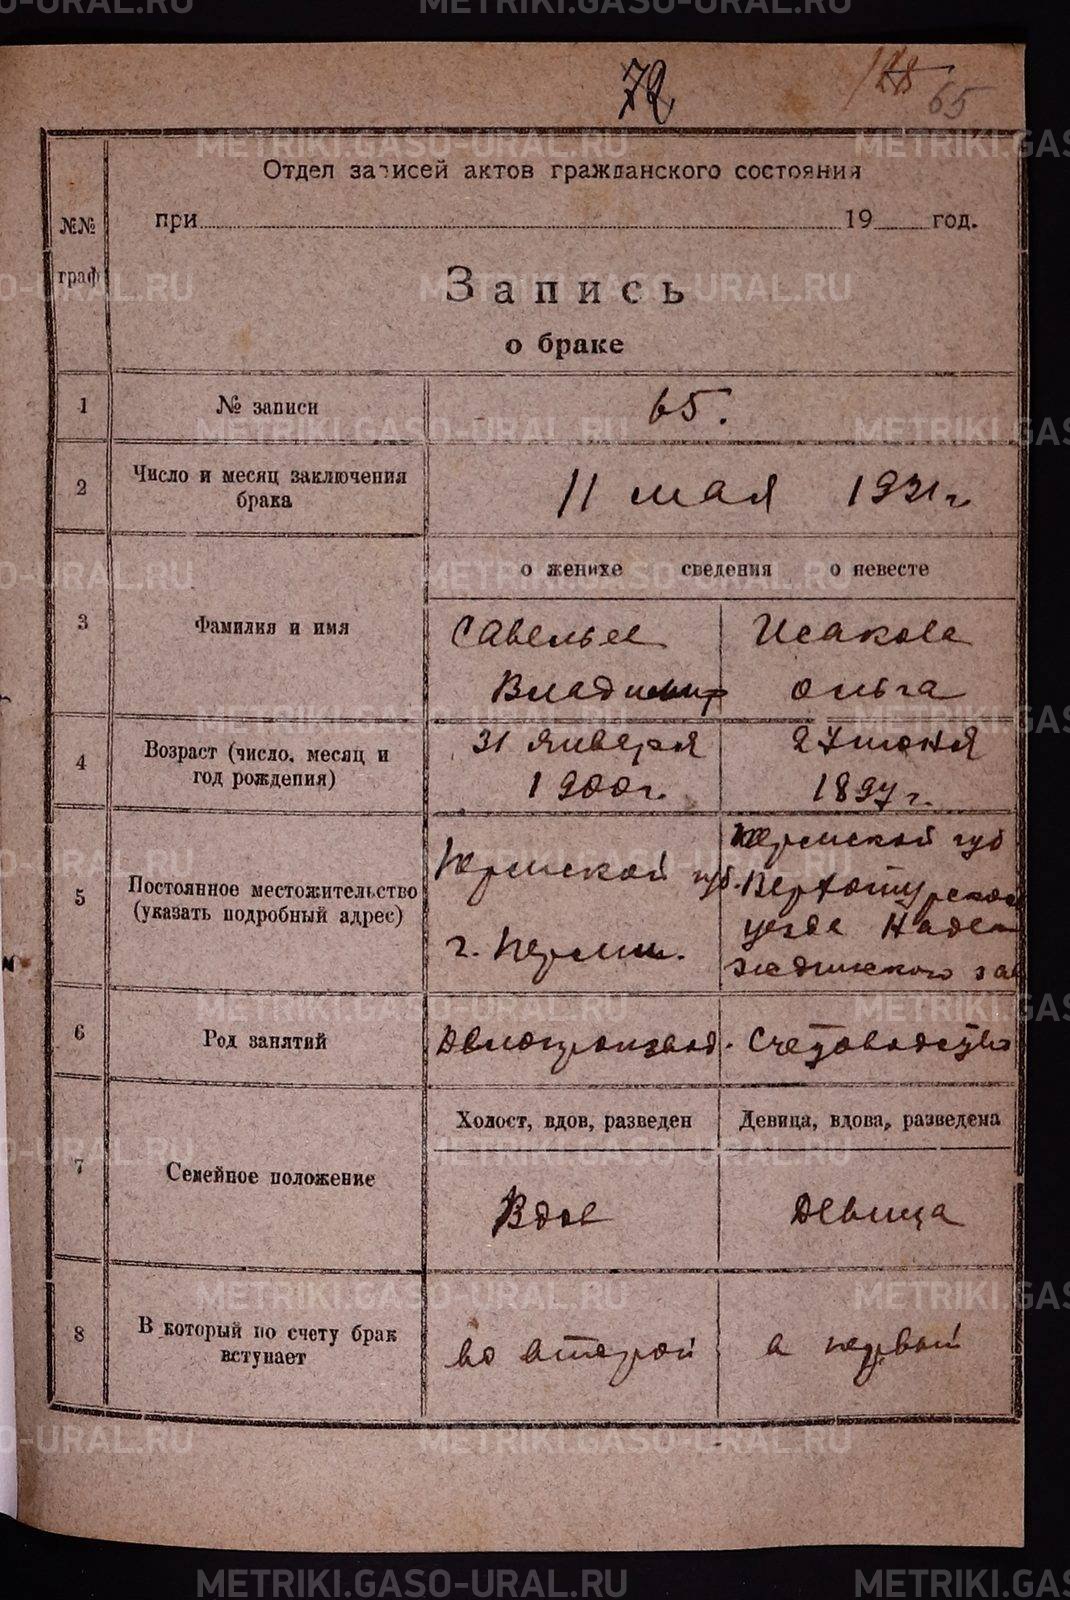 72
128
65
Отдел записей актов гражданского состояния
№№ граф
при 19 год.
Запись
о браке
1 № записи 65.
2 Число и месяц заключения брака 11 мая 1921 г
о женихе сведения о невесте
3 Фамилия и имя
Савельев Исакова
Владимир Ольга
4 Возраст (число, месяц и год рождения)
31 января 27 июня
1900 г. 1897 г.
5 Постоянное местожительство (указать подробный адрес)
Пермской губ.
г. Перми.
Пермской губ
Верхотурского
уезда Надеж
динского зав
6 Род занятий Делопроизвод. Счетоводство
Холост, вдов, разведен Девица, вдова, разведена
7 Семейное положение Вдов Девица
8 В который по счету брак вступает во второй в первый
METRIKI.GASO-URAL.RU